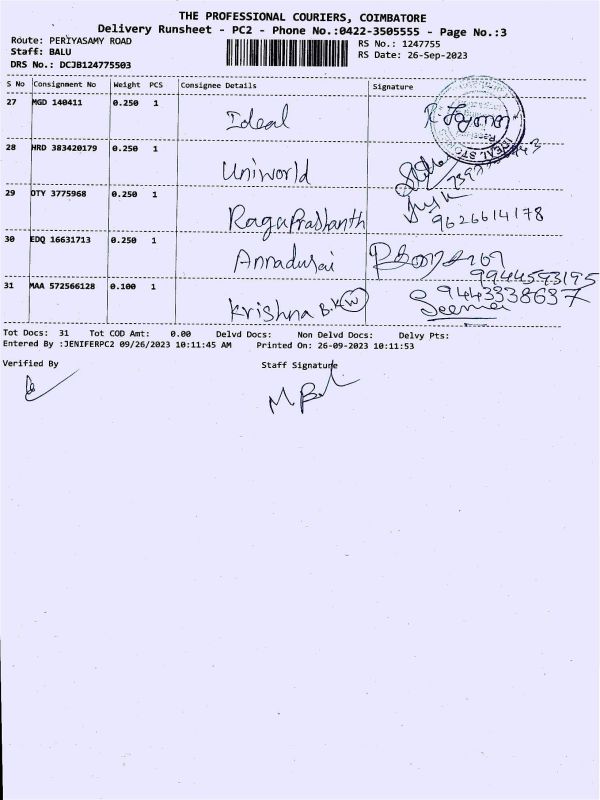 THE PROFESSIONAL COURIERS, COIMBATORE
Delivery Runsheet - PC2 - Phone No.:0422-3505555 - Page No.:3
Route: PERIYASAMY ROAD
Staff: BALU
DRS No.: DCJB124775503
RS No.: 1247755
RS Date: 26-Sep-2023
S No Consignment No Weight PCS Consignee Details Signature
27 MGD 140411 0.250 1 Ideal
IDEAL STORES
28 HRD 383420179 0.250 1 Uniworld
29 OTY 3775968 0.250 1 RagaPrashanth 9626614178
30 EDQ 16631713 0.250 1 Annadurai 9944593195
31 MAA 572566128 0.100 1 Krishna B.K W 9443338637
Seemai
Tot Docs: 31 Tot COD Amt: 0.00 Delvd Docs: Non Delvd Docs: Delvy Pts:
Entered By :JENIFERPC2 09/26/2023 10:11:45 AM Printed On: 26-09-2023 10:11:53
Verified By Staff Signature